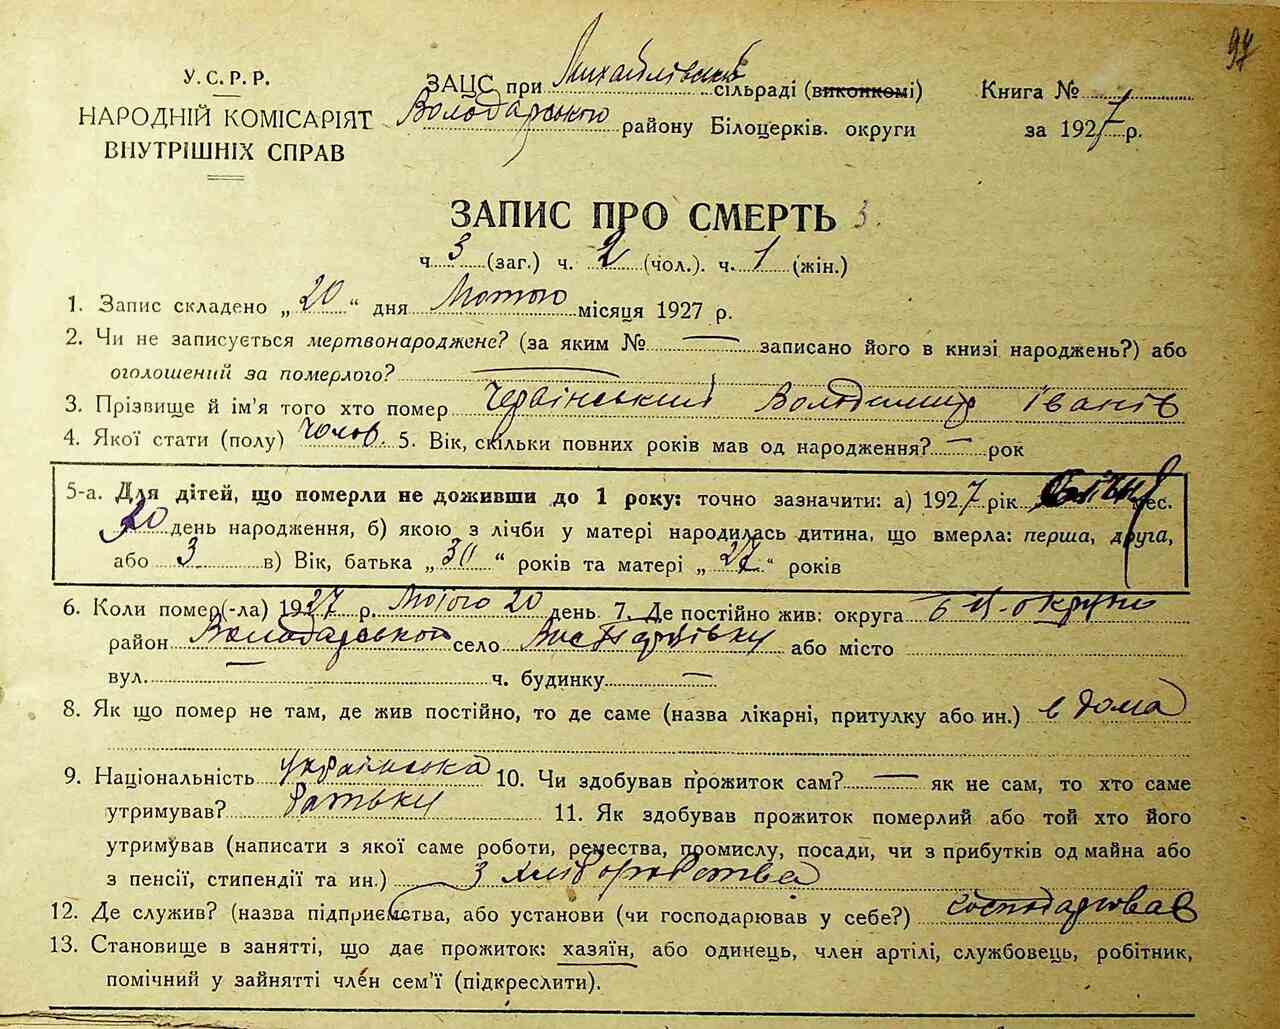 97
У.С.Р.Р.
НАРОДНІЙ КОМІСАРІЯТ
ВНУТРІШНІХ СПРАВ
ЗАЦС при Михайлівській сільраді (виконкомі)
Володарського району Білоцерків. округи
Книга №
за 1927 р.
ЗАПИС ПРО СМЕРТЬ 3.
ч. 3 (заг.) ч. 2 (чол.). ч. 1 (жін.)
1. Запис складено „20“ дня Лютого місяця 1927 р.
2. Чи не записується мертвонароджене? (за яким № — записано його в книзі народжень?) або
оголошений за померлого? —
3. Прізвище й ім'я того хто помер Червінський Володимир Іванів
4. Якої стати (полу) Чолов. 5. Вік, скільки повних років мав од народження? — рок
5-а. Для дітей, що померли не доживши до 1 року: точно зазначити: а) 1927 рік Січня мес.
20 день народження, б) якою з лічби у матері народилась дитина, що вмерла: перша, друга,
або 3 в) Вік, батька „30“ років та матері „27“ років
6. Коли помер(-ла) 1927 р. Лютого 20 день. 7. Де постійно жив: округа Б Ц-округи
район Володарського село або місто
вул. — ч. будинку —
8. Як що помер не там, де жив постійно, то де саме (назва лікарні, притулку або ин.) в дома
9. Національність українська 10. Чи здобував прожиток сам? — як не сам, то хто саме
утримував? батьки 11. Як здобував прожиток померлий або той хто його
утримував (написати з якої саме роботи, ремества, промислу, посади, чи з прибутків од майна або
з пенсії, стипендії та ин.) З хліборобства
12. Де служив? (назва підприємства, або установи (чи господарював у себе?) господарював
13. Становище в занятті, що дає прожиток: хазяїн, або одинець, член артілі, службовець, робітник,
помічний у зайнятті член сем'ї (підкреслити).